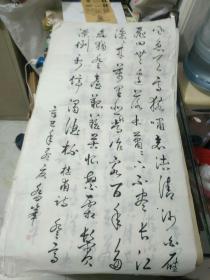 風急天高猿嘯哀渚清沙白鳥
飛回無邊落木蕭蕭下不盡長江
滾滾來萬里悲秋常作客百年多
病獨登臺艱難苦恨繁霜鬢
潦倒新停濁酒杯杜甫詩登高
辛巳年